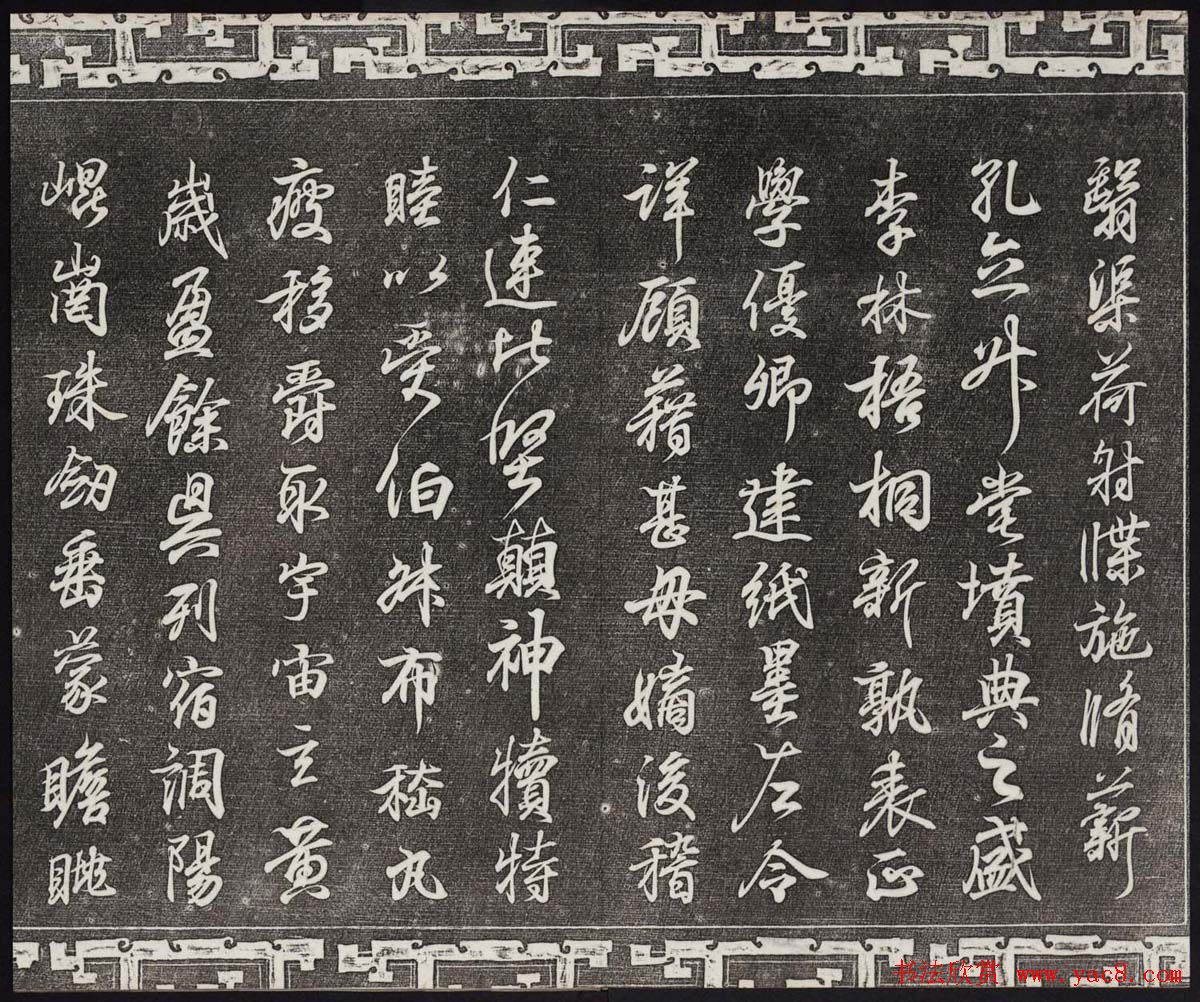 翳渠荷射牒施脩薪
孔立升堂墳典之盛
李林梧桐新孰表正
學優卿建紙墨左令
詳顧藉甚毋嫡後稽
仁連比堅顛神犢特
睦以受伯叔布嵇丸
移爵取宇宙主黄
歲盈餘具列宿調陽
崐崗珠劒垂蒙瞻眺
书法欣赏 www.yac8.com